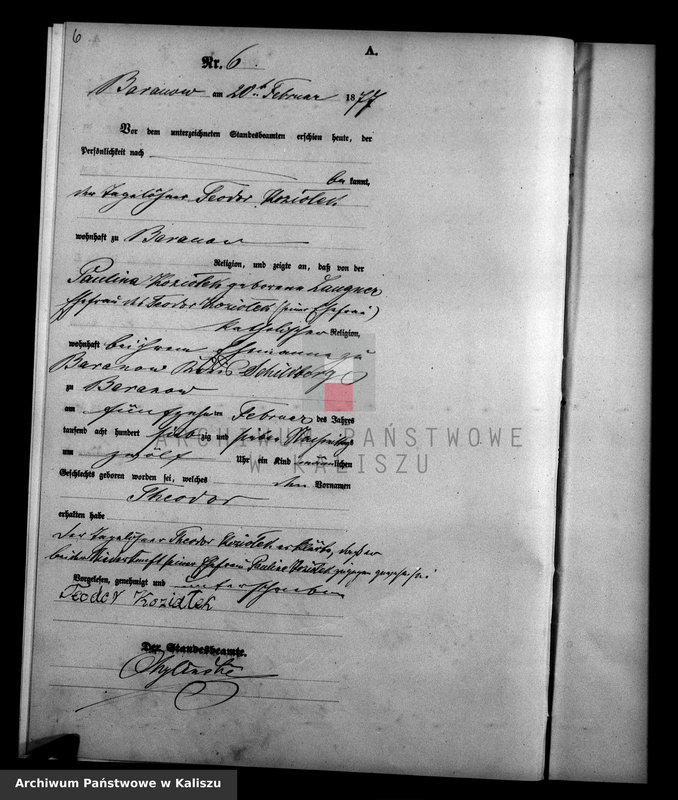 6
A.
Nr. 6.
Baranow am 20ten Februar 1877
Vor dem unterzeichneten Standesbeamten erschien heute, der
Persönlichkeit nach
bekannt,
der Tagelöhner Teodor Koziołek
wohnhaft zu Baranow
Religion, und zeigte an, daß von der
Paulina Koziołek geborene Langner
Ehefrau des Teodor Koziołek (seiner Ehefrau)
katholischer Religion,
wohnhaft bei ihrem Ehemanne zu
Baranow Kreis Schildberg
zu Baranow
am fünfzehnten Februar des Jahres
tausend acht hundert siebzig und sieben Nachmittags
um zwölf Uhr ein Kind männlichen
Geschlechts geboren worden sei, welches den Vornamen
Theodor
erhalten habe
Der Tagelöhner Theodor Koziołek erklärte, daß er
bei der Niederkunft seiner Ehefrau Koziołek zugegen gewesen sei
Vorgelesen, genehmigt und unterschrieben
Teodor Koziołek
Der Standesbeamte.
ARCHIWUM PAŃSTWOWE
W KALISZU
Archiwum Państwowe w Kaliszu